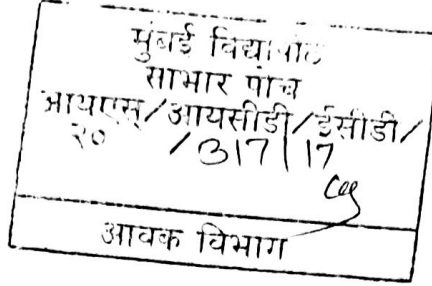 मुंबई विद्यापीठ
साभार पोच
आयएस्/आयसीडी/ईसीडी/
२० /3/7/17
आवक विभाग